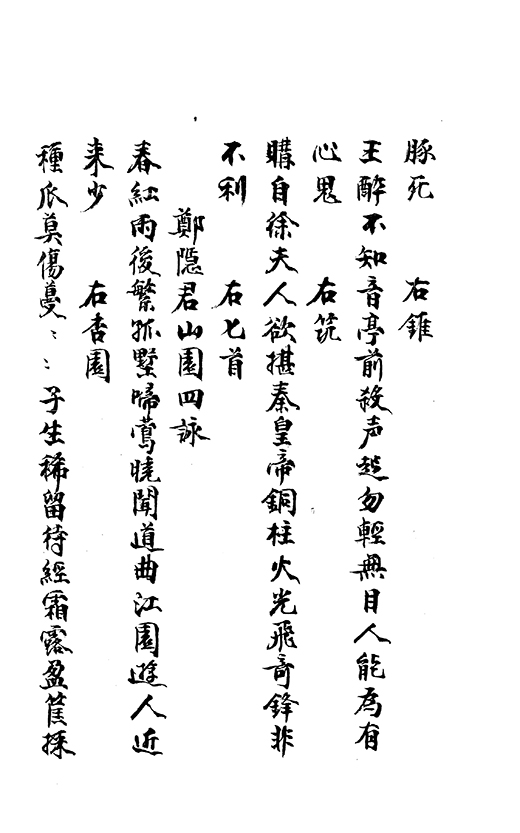 豚死　　右錐
王醉不知音亭前殺声起勿輕無目人能為有
心鬼　　右筑
購自徐夫人欲揕秦皇帝銅柱火光飛奇鋒非
不利　　右匕首
鄭隱君山園四詠
春紅雨後繁孤墅啼鶯曉聞道曲江園遊人近
来少　　右杏園
種瓜莫傷蔓〻〻子生稀留待經霜露盈筐採